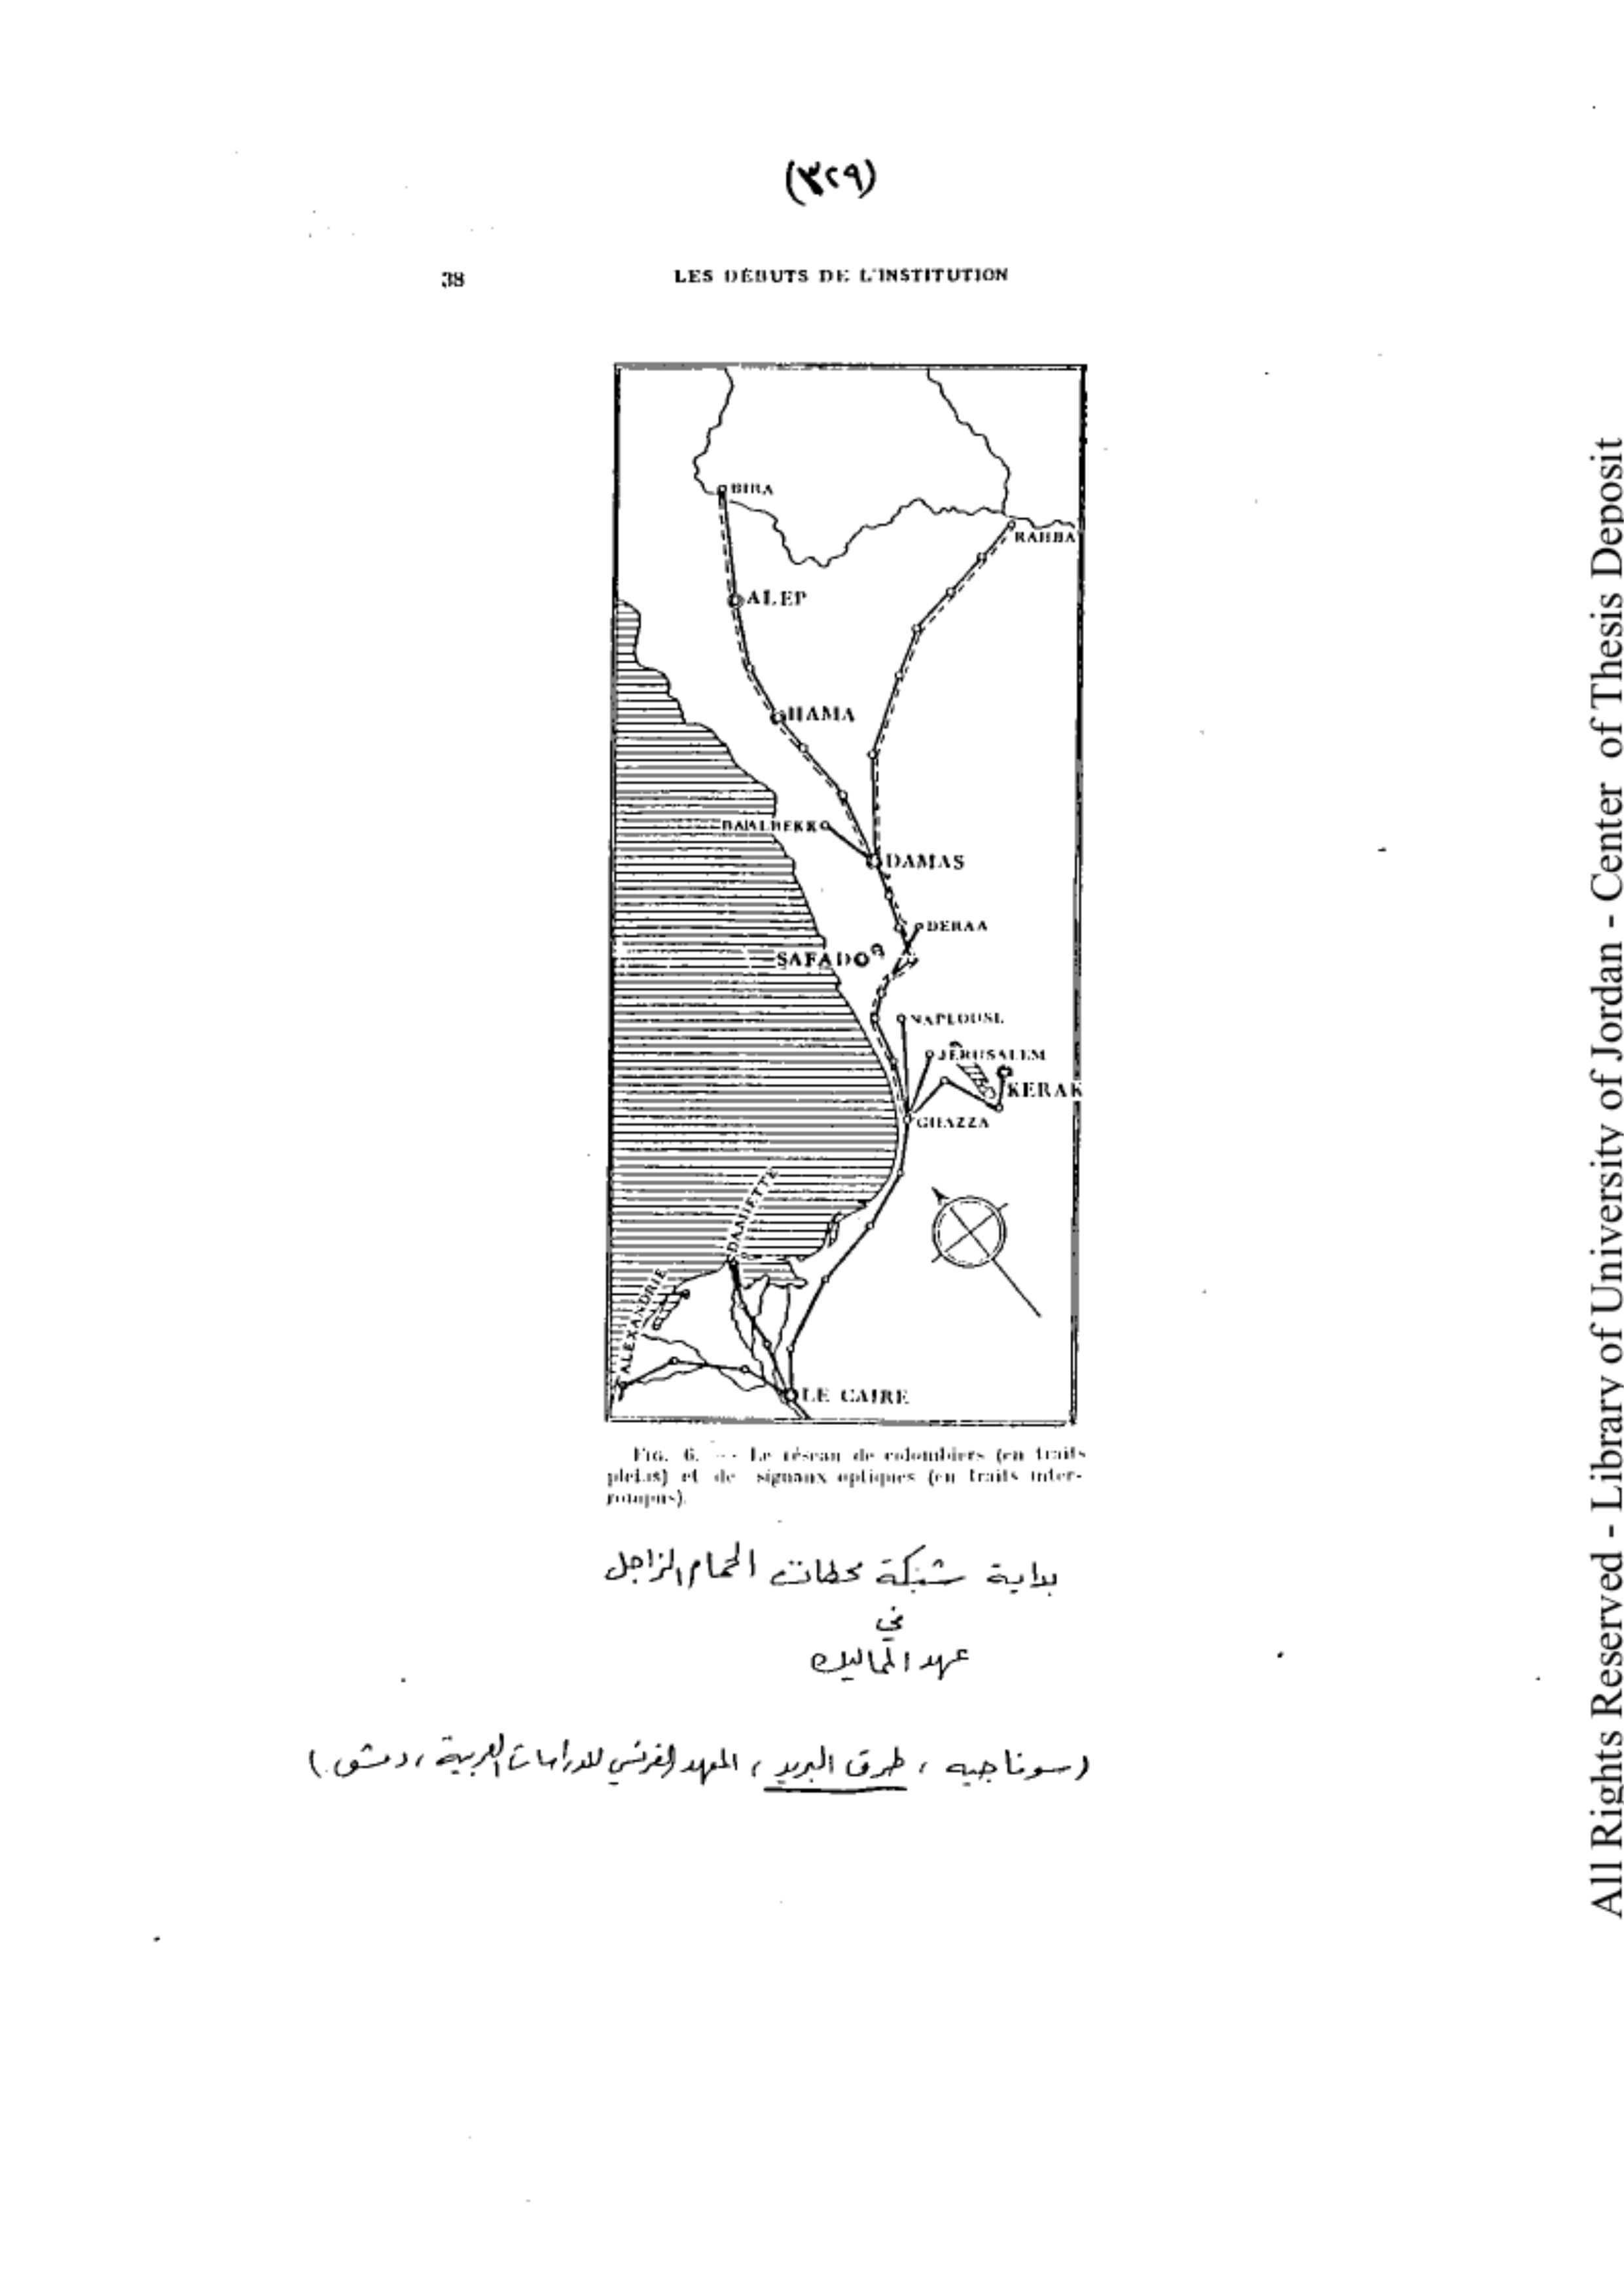 (٣٢٩)
38 LES DÉBUTS DE L'INSTITUTION
BIRA
RAHBA
ALEP
HAMA
BAALBEKK
DAMAS
DERAA
SAFAD
NAPLOUSE
JERUSALEM
KERAK
GHAZZA
DAMIETTE
ALEXANDRIE
LE CAIRE
FIG. 6. -- Le réseau de colombiers (en traits
pleins) et de signaux optiques (en traits inter-
rompus).
بداية شبكة محطات الحمام الزاجل
في
عهد المماليك
(سوفاجيه ، طرق البريد ، المعهد الفرنسي للدراسات العربية ، دمشق .)
All Rights Reserved - Library of University of Jordan - Center of Thesis Deposit